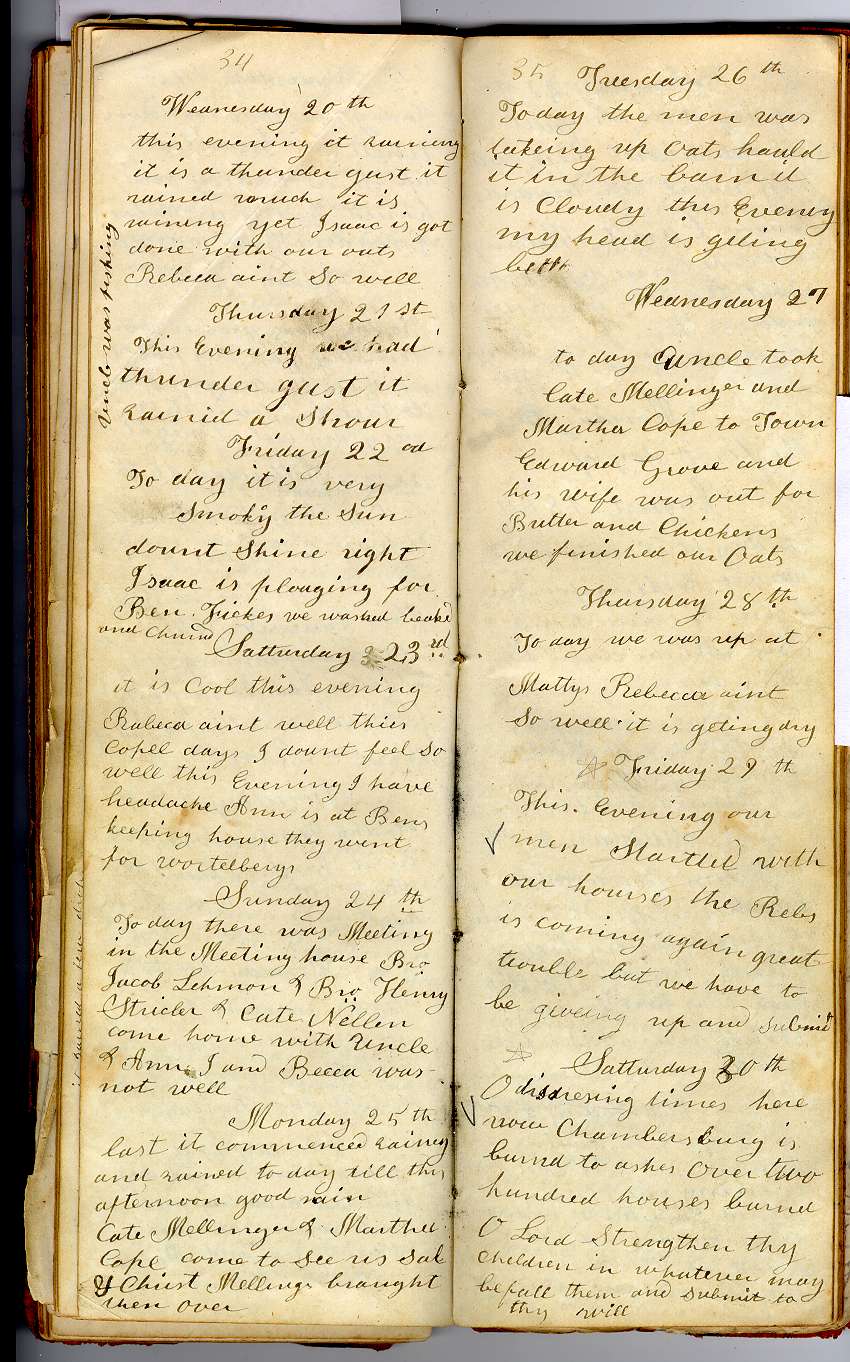 34
Wednesday 20th
this evening it raining
it is a thunder gust it
rained much it is
raining yet Isaac is got
done with our oats
Rebeca aint So well
Uncle was fishing
Thursday 21st
This Evening we had
thunder gust it
rainid a Shour
Friday 22nd
To day it is very
Smoky the Sun
dount Shine right
Isaac is plouging for
Ben Fickes we washed beaked
and Churnd
Satturday 23rd
it is Cool this evening
Rabeca aint well thies
Copel days I dount feel So
well this Evening I have
headache Ann is at Bens
keeping house they went
for wortelberys
Sunday 24th
To day there was Meeting
in the Meeting house Bro
Jacob Lehmon & Bro Henry
Stricler & Cate Nellen
come home with Uncle
& Ann. I and Becca was
not well
Monday 25th
last it commenced rainey
and rained to day till this
afternoon good rain
Cate Mellinger & Martha
Cope come to See us Sal
& Christ Mellinge braught
them over
35 Tuesday 26th
Today the men was
takeing up Oats hauld
it in the barn it
is Cloudy this Evening
my head is giting
better
Wednesday 27
to day Uncle took
Cate Mellinger and
Martha Cope to Town
Edward Grove and
his wife was out for
Butter and Chickens
we finished our Oats
Thursday 28th
To day we was up at
Mattys Rebecca aint
So well it is geting dry
Friday 29th
This Evening our
men Startted with
our hourses the Rebs
is coming again great
trouble but we have to
be giveing up and submit
Satturday 30th
O distresing times here
now Chambersburg is
burnd to ashes Over two
hundred houses burnd
O Lord Strengthen thy
Children in whatever may
befall them and submit to
thy will